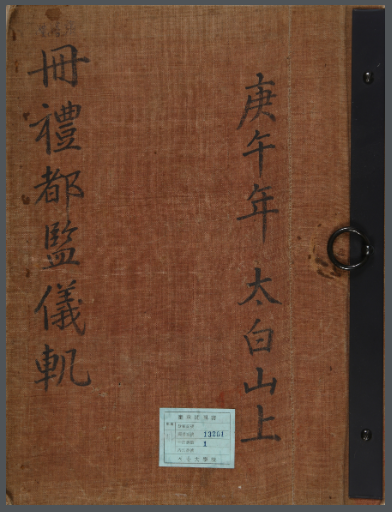 庚午年 太白山上
冊禮都監儀軌
13061
1